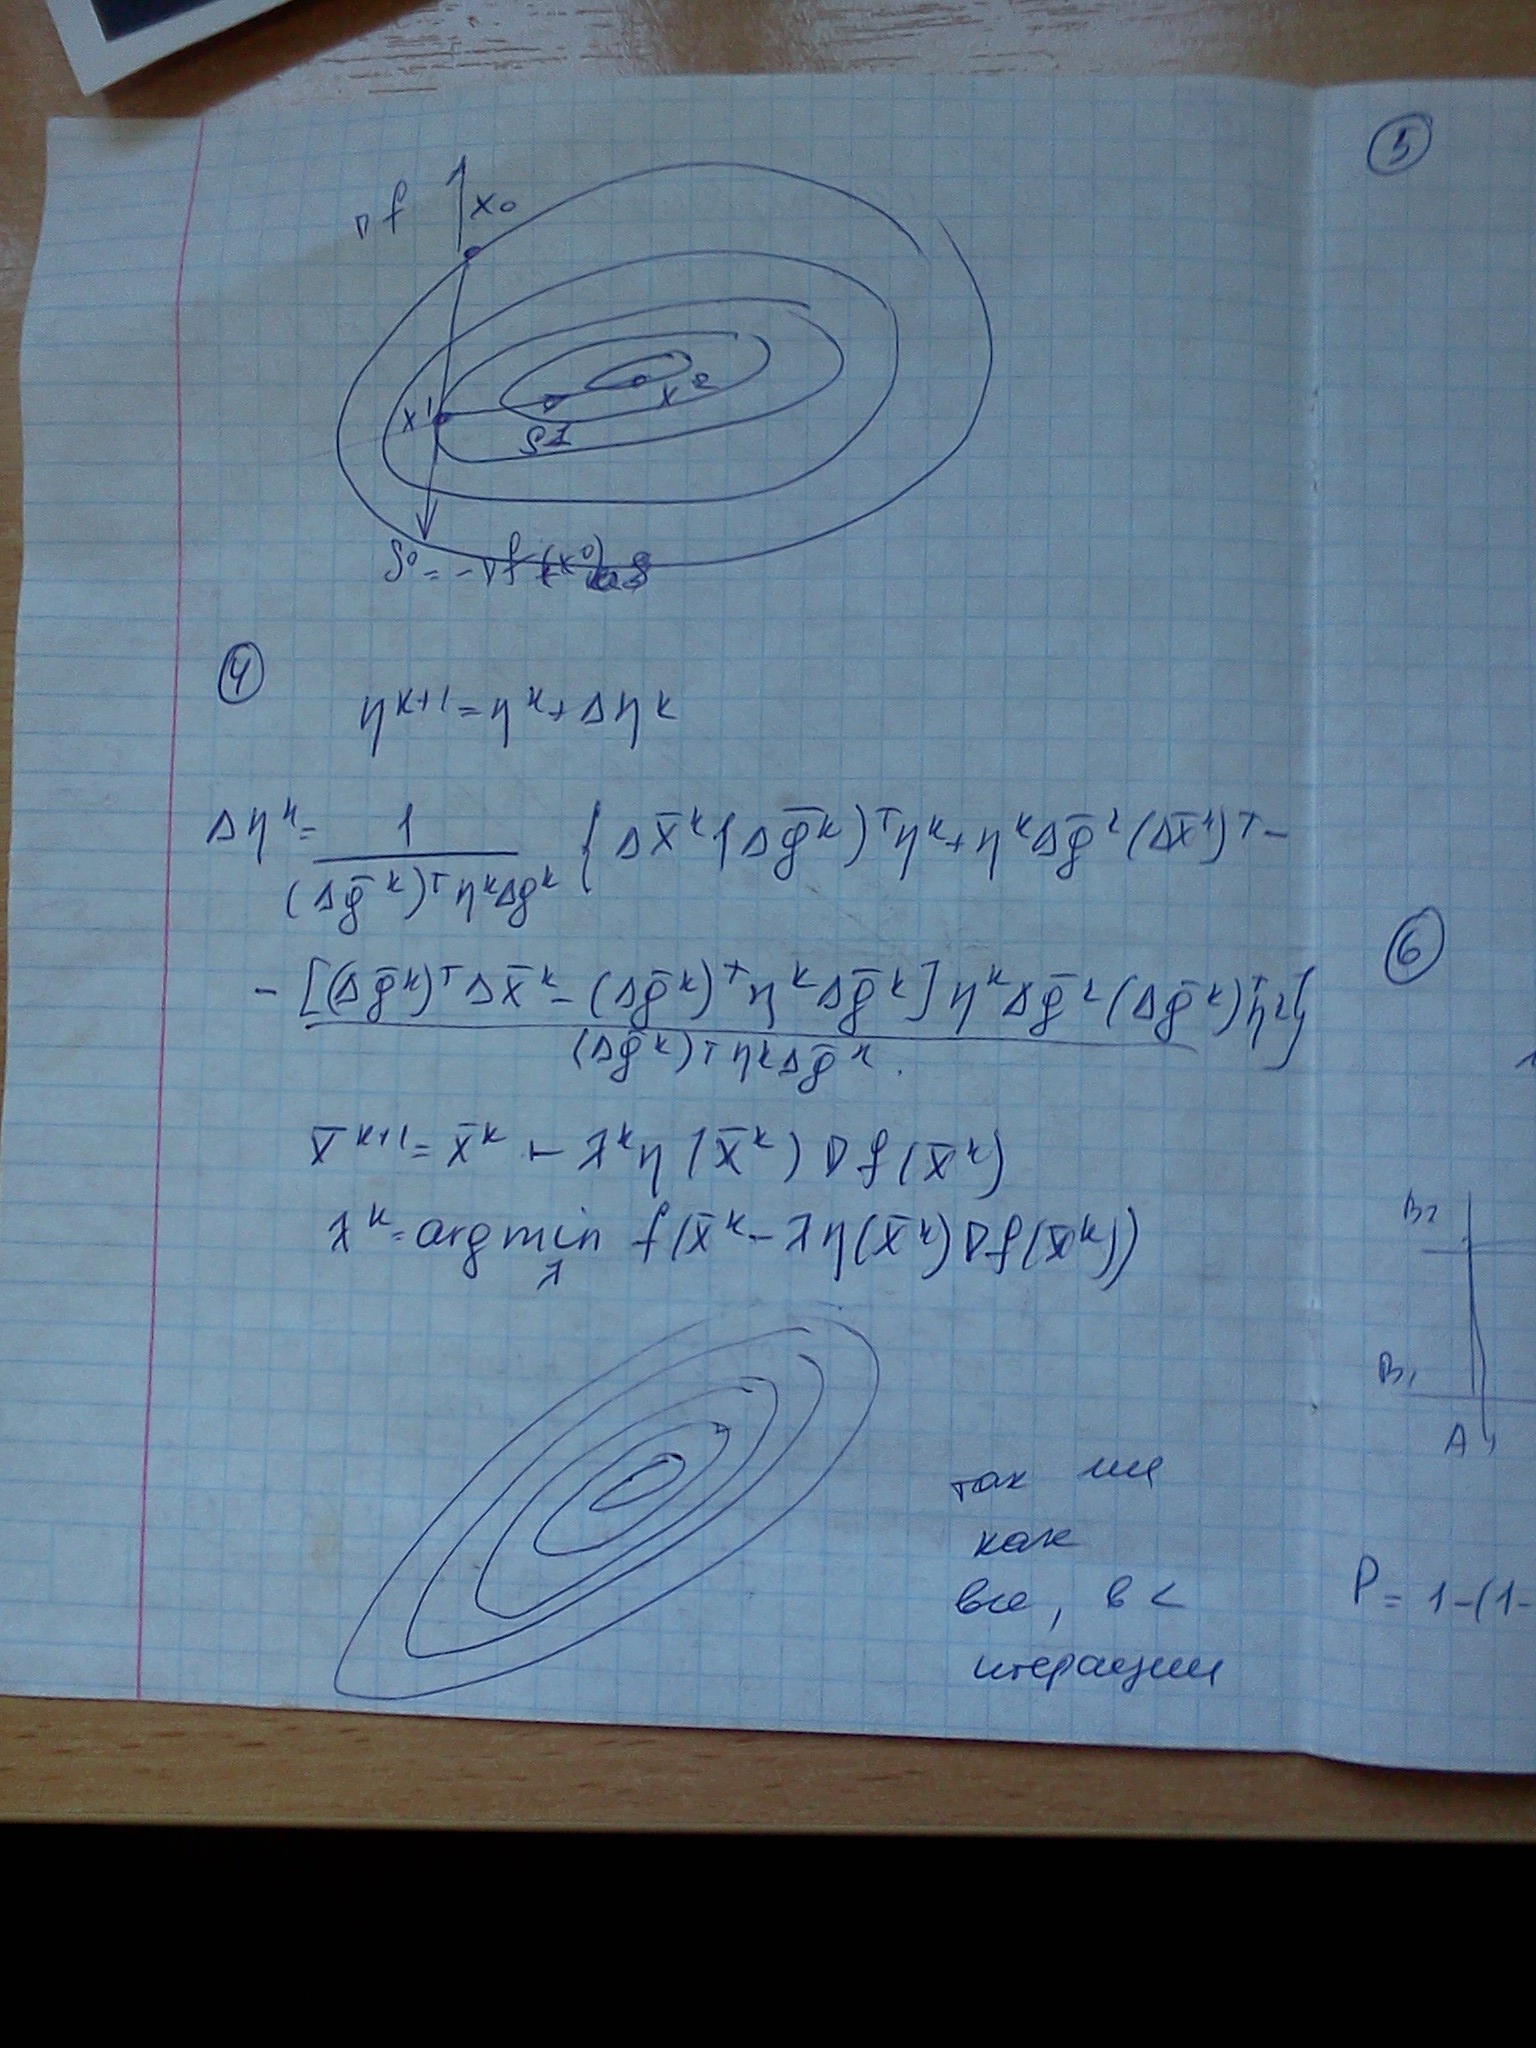 ∇f
x₀
x¹
x²
S¹
S⁰ = -∇f(x⁰)
④
η^{k+1} = η^k + Δη^k
Δη^k = 1 / ((Δḡ^k)^T η^k Δg^k) { Δx̄^k (Δḡ^k)^T η^k + η^k Δḡ^k (Δx̄^k)^T -
- [(Δḡ^k)^T Δx̄^k - (Δḡ^k)^T η^k Δḡ^k] η^k Δḡ^k (Δḡ^k)^T η^k / ((Δḡ^k)^T η^k Δḡ^k) }
x̄^{k+1} = x̄^k - λ^k η(x̄^k) ∇f(x̄^k)
λ^k = argmin_λ f(x̄^k - λη(x̄^k)∇f(x̄^k))
так же
как
все, в <
итерации
⑤
⑥
B₂
B₁
A₁
P = 1-(1-